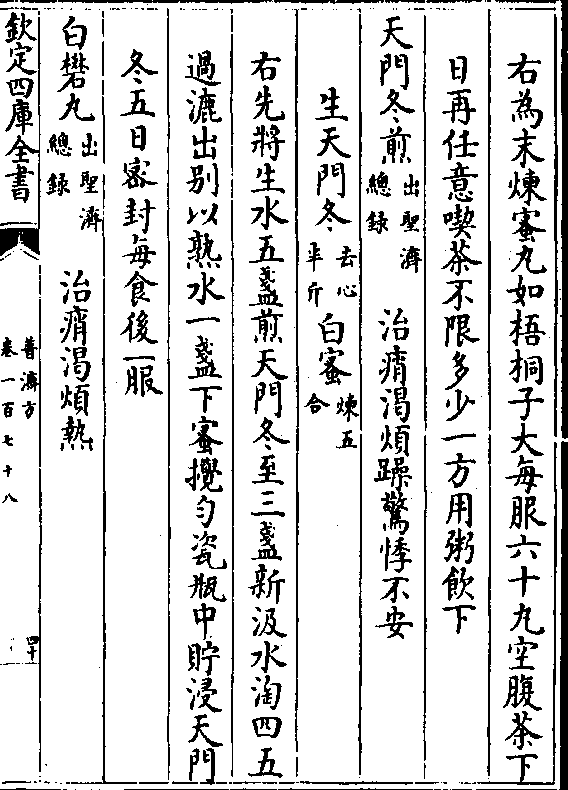 右為末煉蜜丸如梧桐子大每服六十丸空腹茶下
日再任意喫茶不限多少一方用粥飲下
天門冬煎出聖濟總錄　治痟渴煩躁驚悸不安
生天門冬去心半斤白蜜煉五合
右先將生水五盞煎天門冬至三盞新汲水淘四五
過漉出别以熟水一盞下蜜攪勻瓷瓶中貯浸天門
冬五日密封每食後一服
白礬丸出聖濟總錄　治痟渴煩熱
欽定四庫全書
普濟方
卷一百七十八
四十